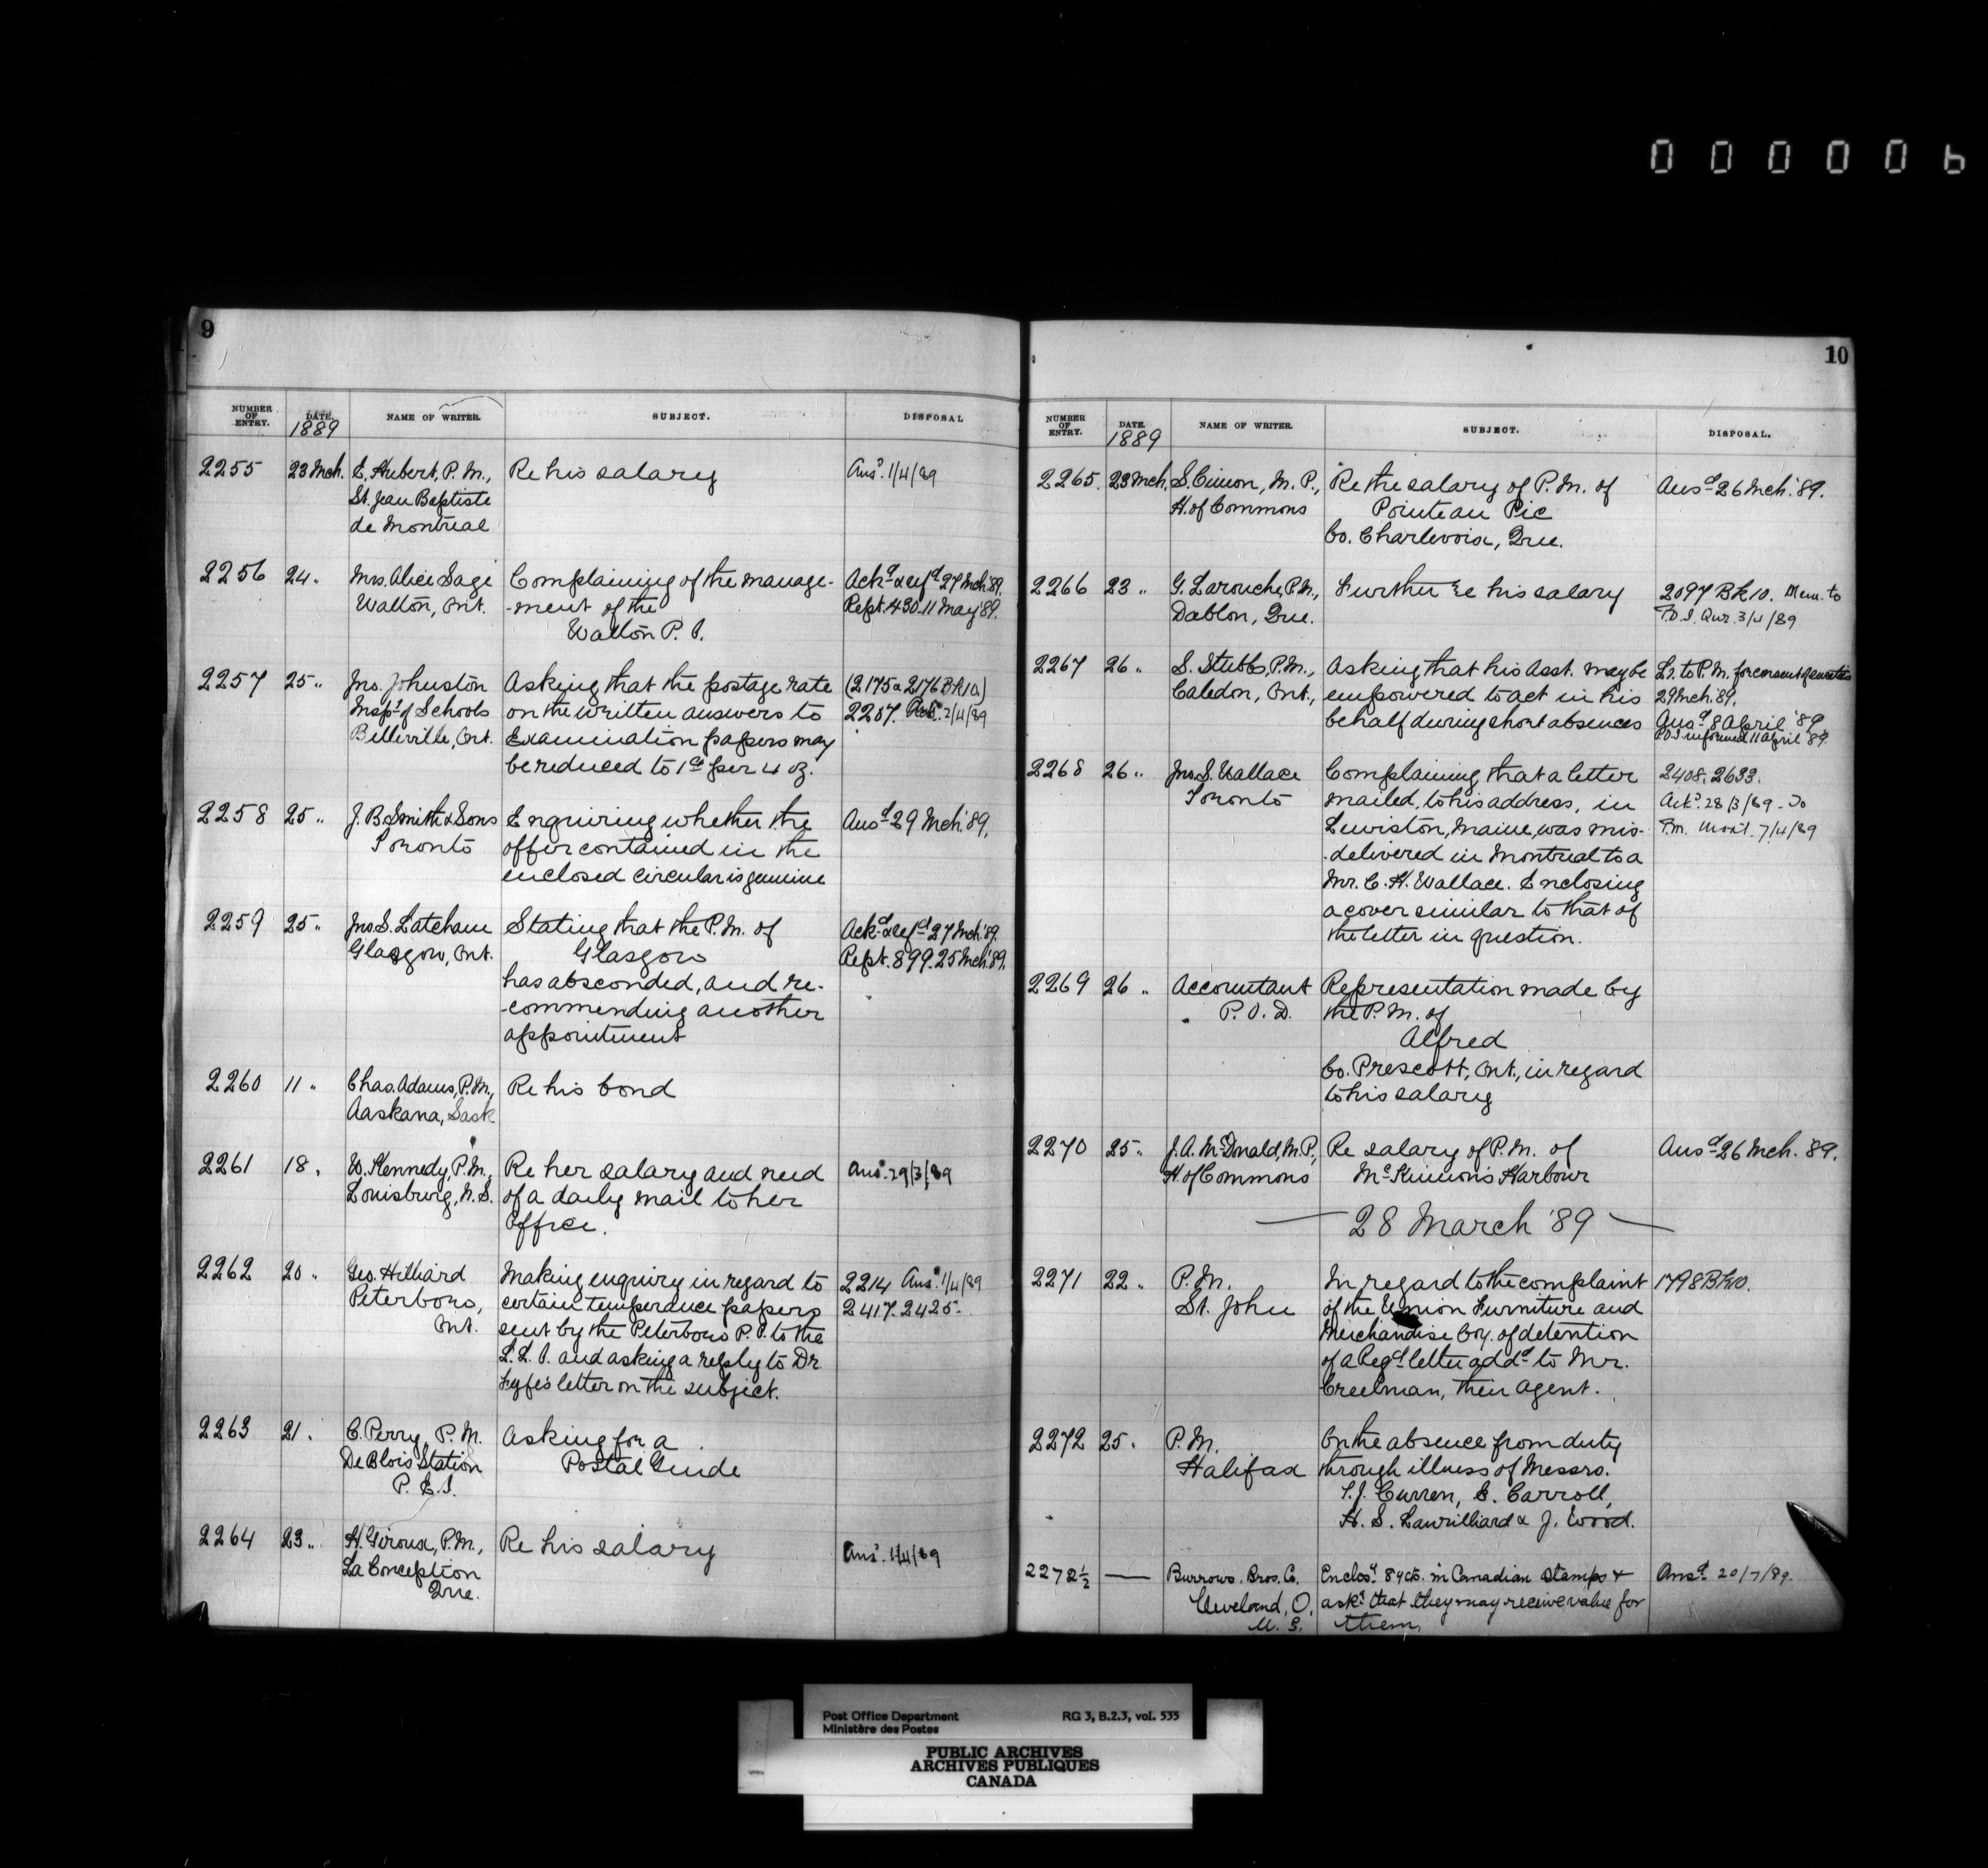 000006
9
NUMBER OF ENTRY. DATE. 1889 NAME OF WRITER. SUBJECT. DISPOSAL
2255 23 Mch. E. Hubert, P.M., Re his salary Ansd. 1/4/89
St. Jean Baptiste
de Montreal
2256 24 " Mrs. Alice Sage Complaining of the manage- Ackd & refd 27 Mch '89.
Walton, Ont. -ment of the Rept. 430. 11 May '89.
Walton P.O.
2257 25 " Jno. Johnston Asking that the postage rate (2175 & 2176 Bk 10)
Inspr of Schools on the written answers to 2207. 2/4/89
Belleville, Ont. Examination papers may
be reduced to 1c per 4 oz.
2258 25 " J. B. Smith & Sons Enquiring whether the Ansd 29 Mch. '89.
Toronto offer contained in the
enclosed circular is genuine
2259 25 " Jno. S. Latcham Stating that the P.M. of Ackd & refd 27 Mch '89.
Glasgow, Ont. Glasgow Rept. 899. 25 Mch. '89.
has absconded, and re-
-commending another
appointment
2260 11 " Chas. Adams, P.M., Re his bond
Aaskana, Sask
2261 18 " W. Kennedy, P.M., Re her salary and need Ansd. 29/3/89
Louisburg, N.S. of a daily mail to her
Office.
2262 20 " Geo. Hilliard Making enquiry in regard to 2214 Ansd. 1/4/89
Peterboro, certain temperance papers 2417. 2425.
Ont. sent by the Peterboro P.O. to the
D.L.O. and asking a reply to Dr.
Fyfe's letter on the subject.
2263 21 " C. Perry, P.M. Asking for a
De Blois Station Postal Guide
P.E.I.
2264 23 " H. Giroux, P.M., Re his salary Ansd. 1/4/89
La Conception
Que.
10
NUMBER OF ENTRY. DATE. 1889 NAME OF WRITER. SUBJECT. DISPOSAL.
2265. 23 Mch. S. Cimon, M.P., Re the salary of P.M. of Ansd 26 Mch. '89.
H. of Commons Pointe au Pic
Co. Charlevoix, Que.
2266 23 " G. Larouche, P.M., Further re his salary 2097 Bk 10. Mem. to
Dablon, Que. P.O.I. Que. 3/4/89
2267 26 " S. Stubbs, P.M., Asking that his Asst. may be Lr. to P.M. for consent of sureties
Caledon, Ont., empowered to act in his 29 Mch. '89.
behalf during short absences Ansd 8 April '89.
P.O.I. informed 11 April '89.
2268 26 " Jno. S. Wallace Complaining that a letter 2408. 2633.
Toronto mailed, to his address, in Ackd. 28/3/89 - To
Lewiston, Maine, was mis- P.M. Mont. 7/4/89
-delivered in Montreal to a
Mr. C. H. Wallace. Enclosing
a cover similar to that of
the letter in question.
2269 26 " Accountant Representation made by
P.O.D. the P.M. of
Alfred
Co. Prescott, Ont., in regard
to his salary
2270 25 " J. A. McDonald, M.P., Re salary of P.M. of Ansd 26 Mch. '89.
H. of Commons McKinnon's Harbour
— 28 March '89 —
2271 22 " P.M. In regard to the complaint 1798 Bk 10.
St. John of the Union Furniture and
Merchandise Coy. of detention
of a Regd letter addd to Mr.
Creelman, their agent.
2272 25 " P.M. On the absence from duty
Halifax through illness of Messrs.
T. J. Curren, E. Carroll,
H. S. Laurilliard & J. Wood.
2272½ — Burrows Bros. Co. Enclosg 84 cts. in Canadian Stamps & Ansd 20/7/89.
Cleveland, O, askg that they may receive value for
U.S. them.
Post Office Department RG 3, B.2.3, vol. 535
Ministère des Postes
PUBLIC ARCHIVES
ARCHIVES PUBLIQUES
CANADA